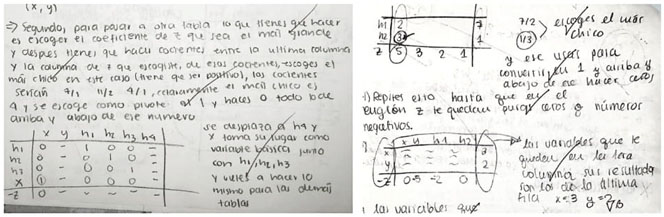 (x, y)
⇒ Segundo, para pasar a otra tabla lo que tienes que hacer
es escoger el coeficiente de z que sea el mas grande
y despues tienes que hacer cocientes entre la ultima columna
y la columna de z que escogiste, de esos cocientes, escoges el
más chico en este caso (tiene que ser positivo), los cocientes
serian 7/1 11/2 4/1, claramente el mas chico es
4 y se escoge como pivote al 1 y haces 0 todo lo de
arriba y abajo de ese numero
x y h1 h2 h3 h4
h1 0 - 1 0 0 -
h2 0 - 0 1 0 -
h3 0 - 0 0 1 -
x 1 - 0 0 0 -
-z 0 - - - - -
se desplaza a h4 y
x toma su lugar como
variable básica junto
con h1, h2, h3
y vuelves a hacer lo
mismo para las demás
tablas
h1 2 7
h2 3 1
-z 5 3 2 1
7/2
1/3
escoges el más
chico
y ese usas para
convertir en 1 y arriba y
abajo de ese hacer ceros
Repites esto hasta que en el
renglón z te queden puros ceros o números
negativos.
x y h1 h2
x 3
y 2
-z 0 -5 -2 0
las variables que te
queden en la 1era
columna sus resultados
son los de la última
fila x=3 y=2
las variables que